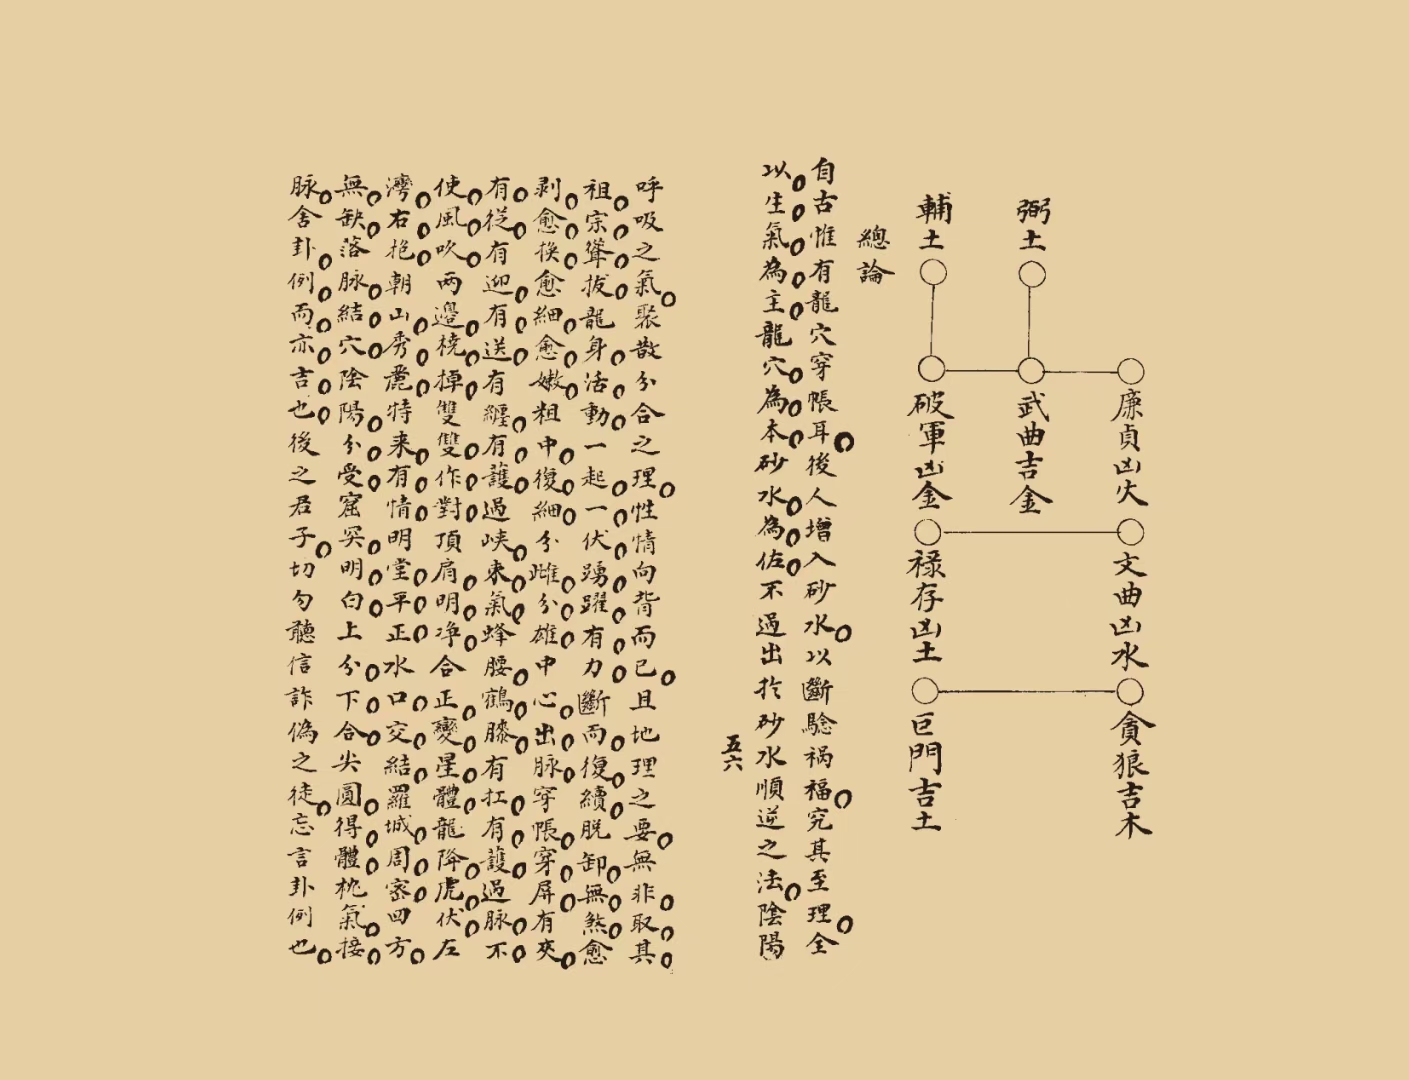 弼土
輔土
廉貞凶火
武曲吉金
破軍凶金
文曲凶水
祿存凶土
貪狼吉木
巨門吉土
總論
自古惟有龍穴穿帳耳後人增入砂水以斷驗禍福究其至理全
以生氣為主龍穴為本砂水為佐不過出於砂水順逆之法陰陽
五六
呼吸之氣聚散分合之理性情向背而已且地理之要無非取其
祖宗聳拔龍身活動一起一伏踴躍有力斷而復續脫卸無煞愈
剥愈換愈細愈嫩粗中復細分雌分雄中心出脉穿帳穿屏有夾
有從有迎有送有纏有護過峽束氣蜂腰鶴膝有扛有護過脉不
使風吹两邊橈棹雙雙作對頂肩明净合正變星體龍降虎伏左
灣右抱朝山秀麗特来有情明堂平正水口交結羅城周密四方
無缺落脉結穴陰陽分受窟突明白上分下合尖圓得體枕氣接
脉舍卦例而亦吉也後之君子切勿聽信詐偽之徒忘言卦例也